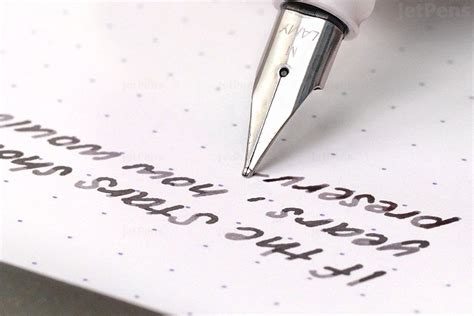 JetPens
LAMY
M
If the stars sho
years, how would
preserv